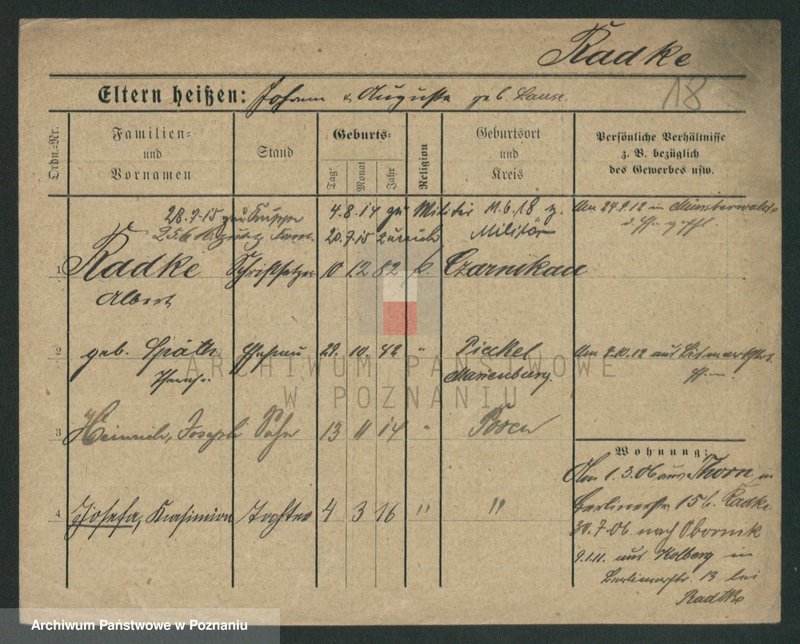 Radke
18
Eltern heißen: Johann u. Auguste geb. Lause
Ordn.-Nr.
Familien- und Vornamen
Stand
Geburts-
Tag
Monat
Jahr
Religion
Geburtsort und Kreis
Persönliche Verhältnisse z. B. bezüglich des Gewerbes usw.
28.9.15 zur Truppe
4.8.14 zu Militär 11.6.18 z.
20.7.15 zurück Militär
Am 24.9.12 in Münsterwalde
1 Radke Schriftsetzer 10 12 82 k. Czarnikau
Albert
2 geb. Späth Ehefrau 29. 10. 92 " Pieckel
Marienburg.
Am 9.10.12 aus
3 Heinrich, Joseph Sohn 13 11 14 " Posen
Wohnung:
Am 1.3.06 aus Thorn in
Berlinerstr. 15 b. Radke
4 Josefa, Kasimira Tochter 4 3 16 " "
30.7.06 nach Obornik
9.1.11. aus Kolberg in
Berlinerstr. 13 bei
Radtke
ARCHIWUM PAŃSTWOWE
W POZNANIU
Archiwum Państwowe w Poznaniu